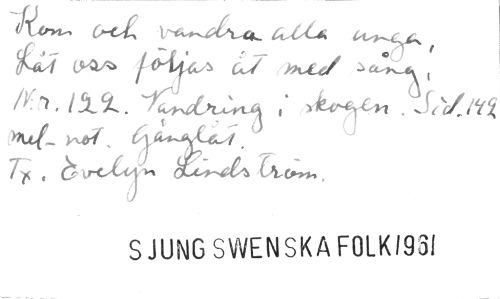 Kom och vandra alla unga,
Låt oss följas åt med sång,
N:r. 122. Vandring i skogen. Sid. 149
mel-not. Gånglåt.
Tx. Evelyn Lindström.
SJUNG SWENSKA FOLK/1961